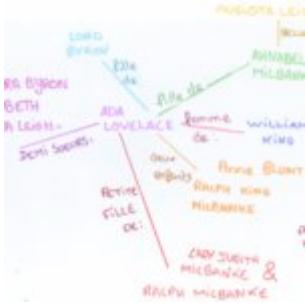 AUGUSTA LEIG
LORD
BYRON
fille
de
ANNABEL
MILBAN
fille de
RA BYRON
BETH
A LEIGH.
ADA
LOVELACE
femme
de:
WILLIAM
KING
DEMI SOEURS:
enfants
ANNE BLUNT
RALPH KING
MILBANKE
PETITE
FILLE
DE:
LADY JUDITH
MILBANKE &
RALPH MILBANKE